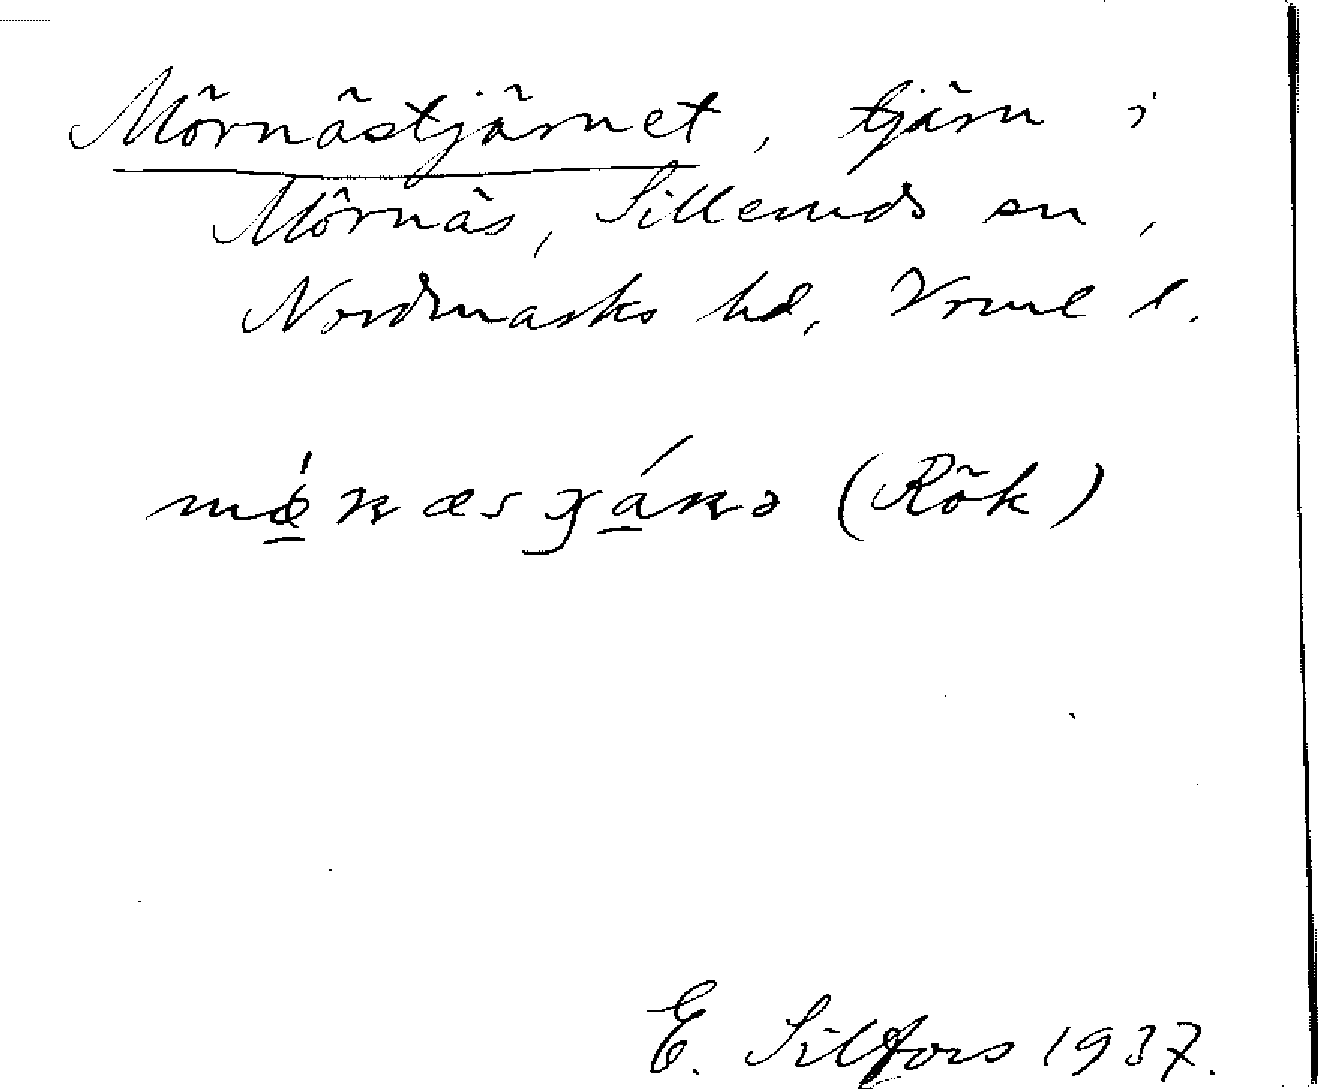 Mörnästjärnet, tjärn i
Mörnäs, Silleruds sn,
Nordmarks hd, Vrml l.
(Rök)
E. Silfors 1937.